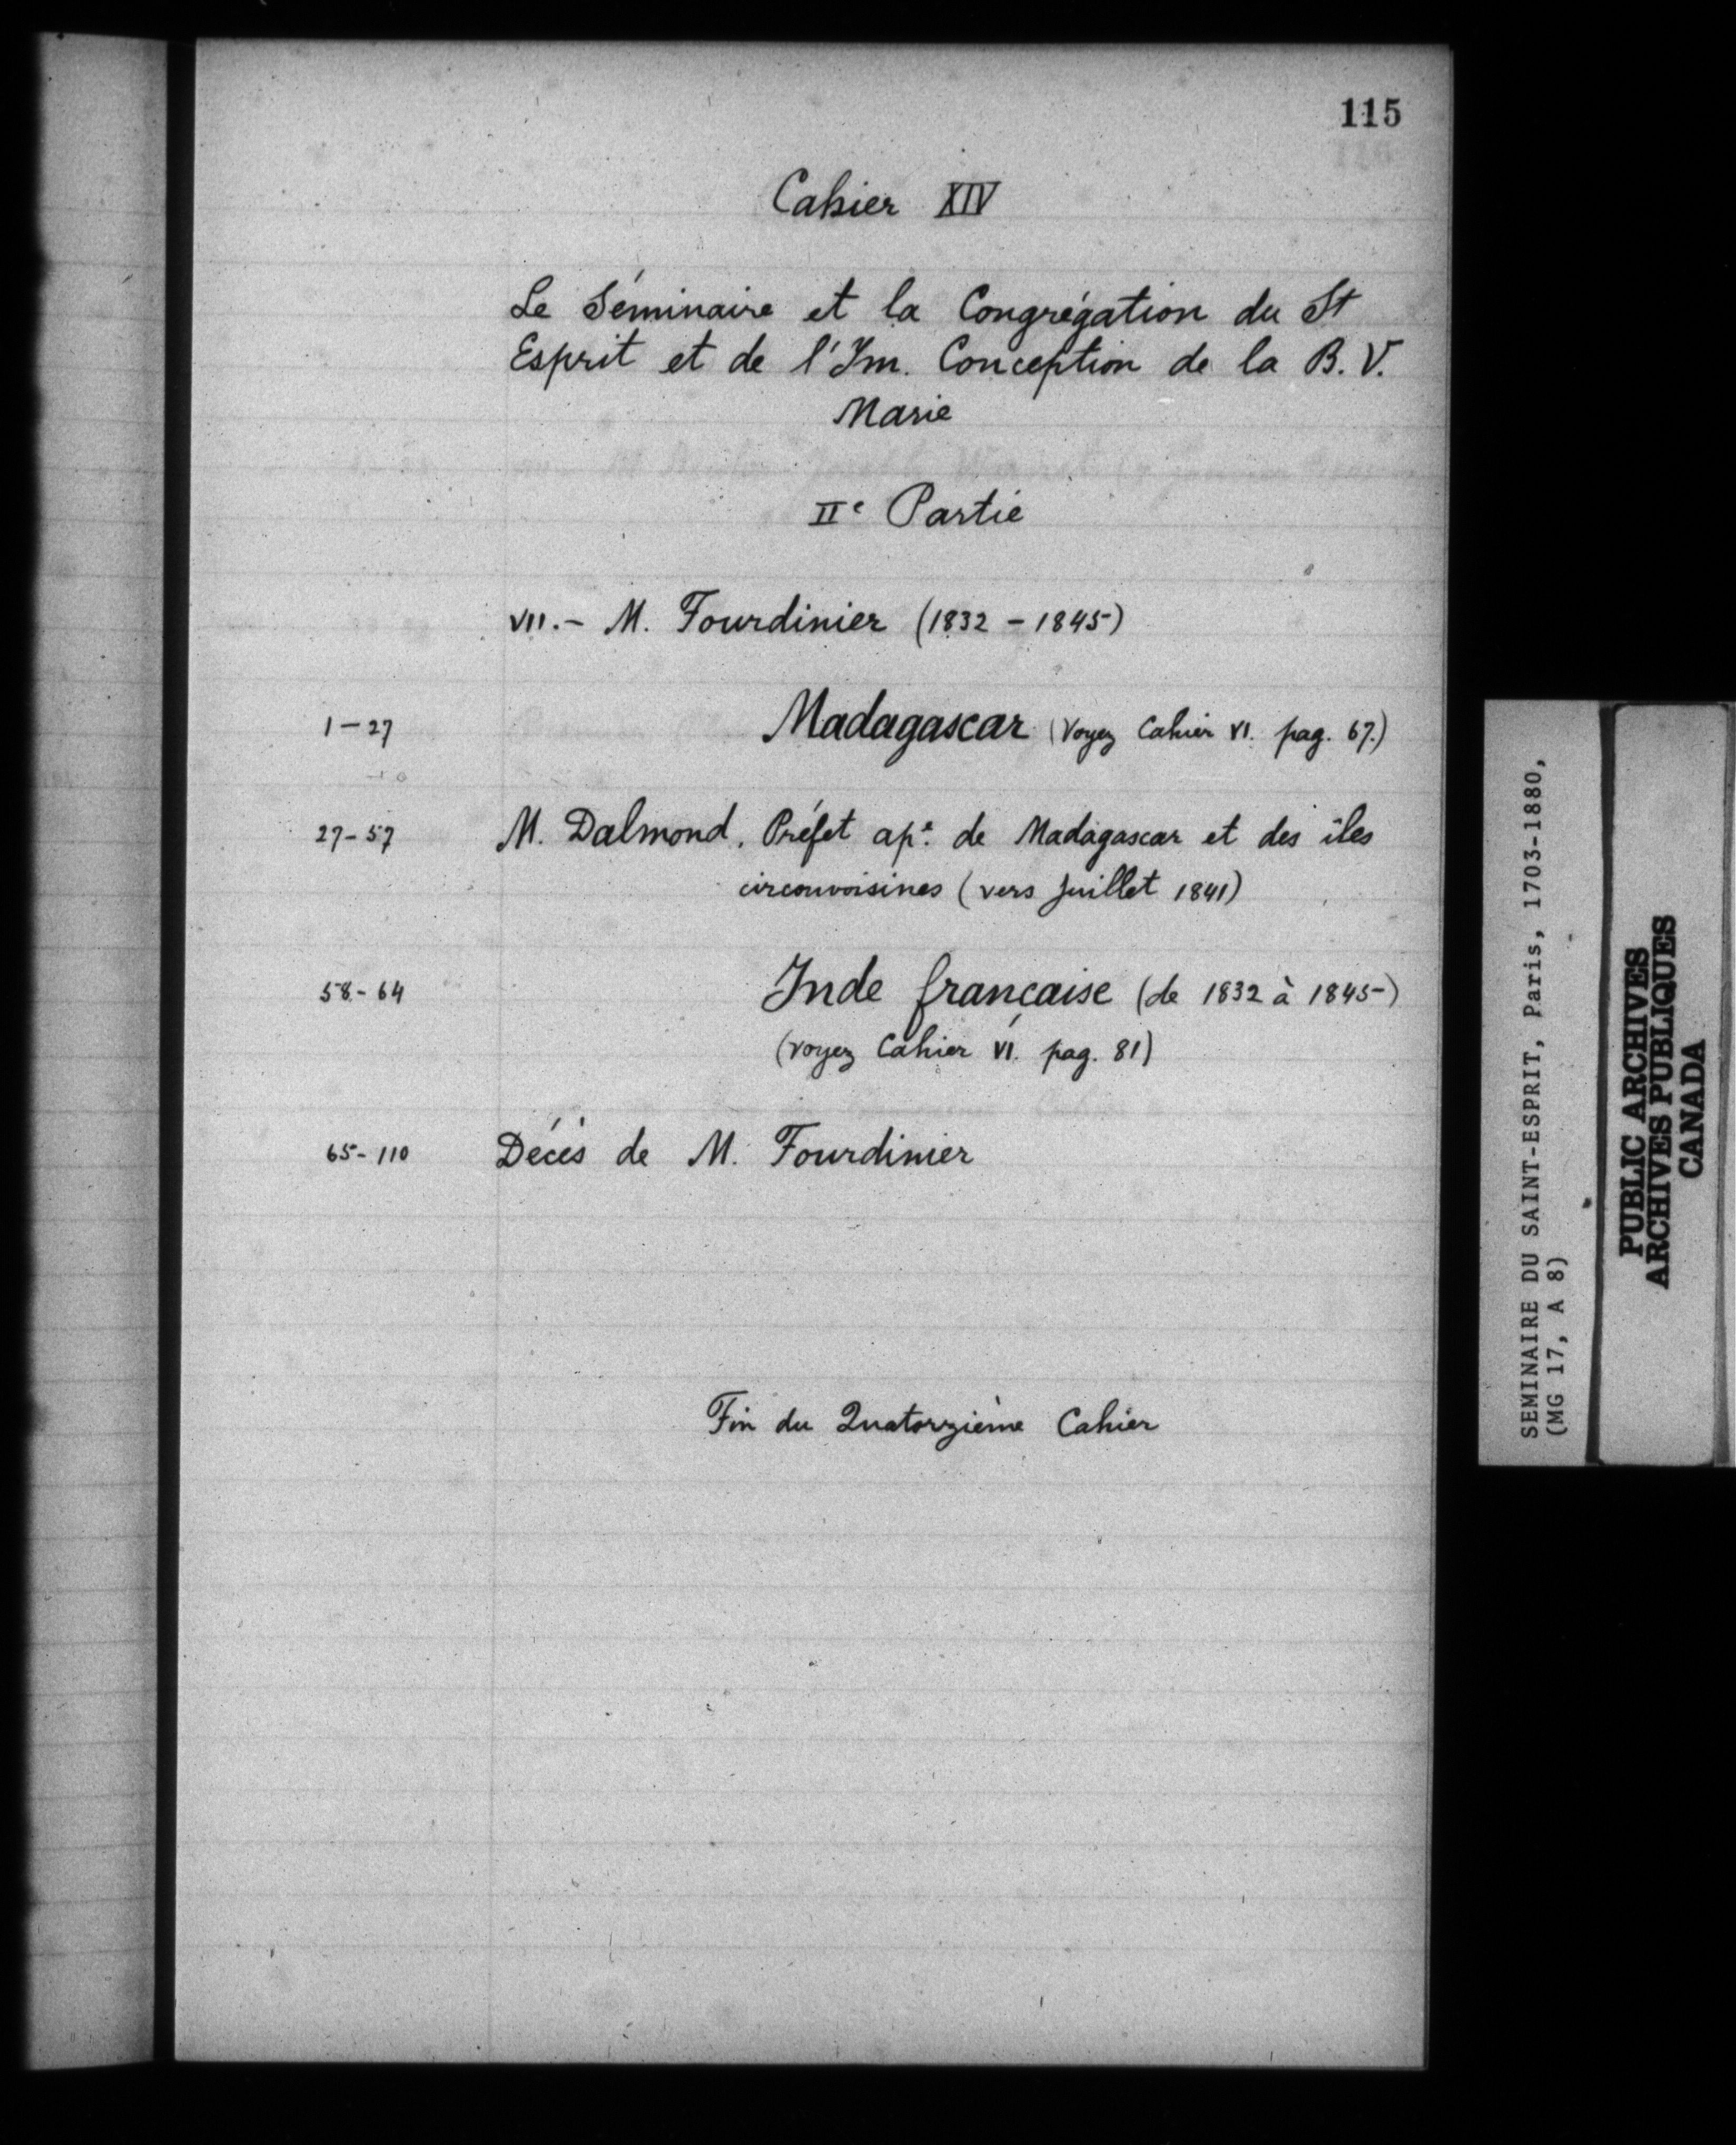 115
Cahier XIV
Le Séminaire et la Congrégation du St
Esprit et de l'Im. Conception de la B. V.
Marie
IIe Partie
VII. - M. Fourdinier (1832 - 1845)
1 - 27 Madagascar (Voyez Cahier VI. pag. 67.)
27 - 57 M. Dalmond, Préfet ape. de Madagascar et des îles
circonvoisines (vers Juillet 1841)
58 - 64 Inde française (de 1832 à 1845)
(voyez Cahier VI. pag. 81)
65 - 110 Décès de M. Fourdinier
Fin du Quatorzième Cahier
SEMINAIRE DU SAINT-ESPRIT, Paris, 1703-1880,
(MG 17, A 8)
PUBLIC ARCHIVES
ARCHIVES PUBLIQUES
CANADA